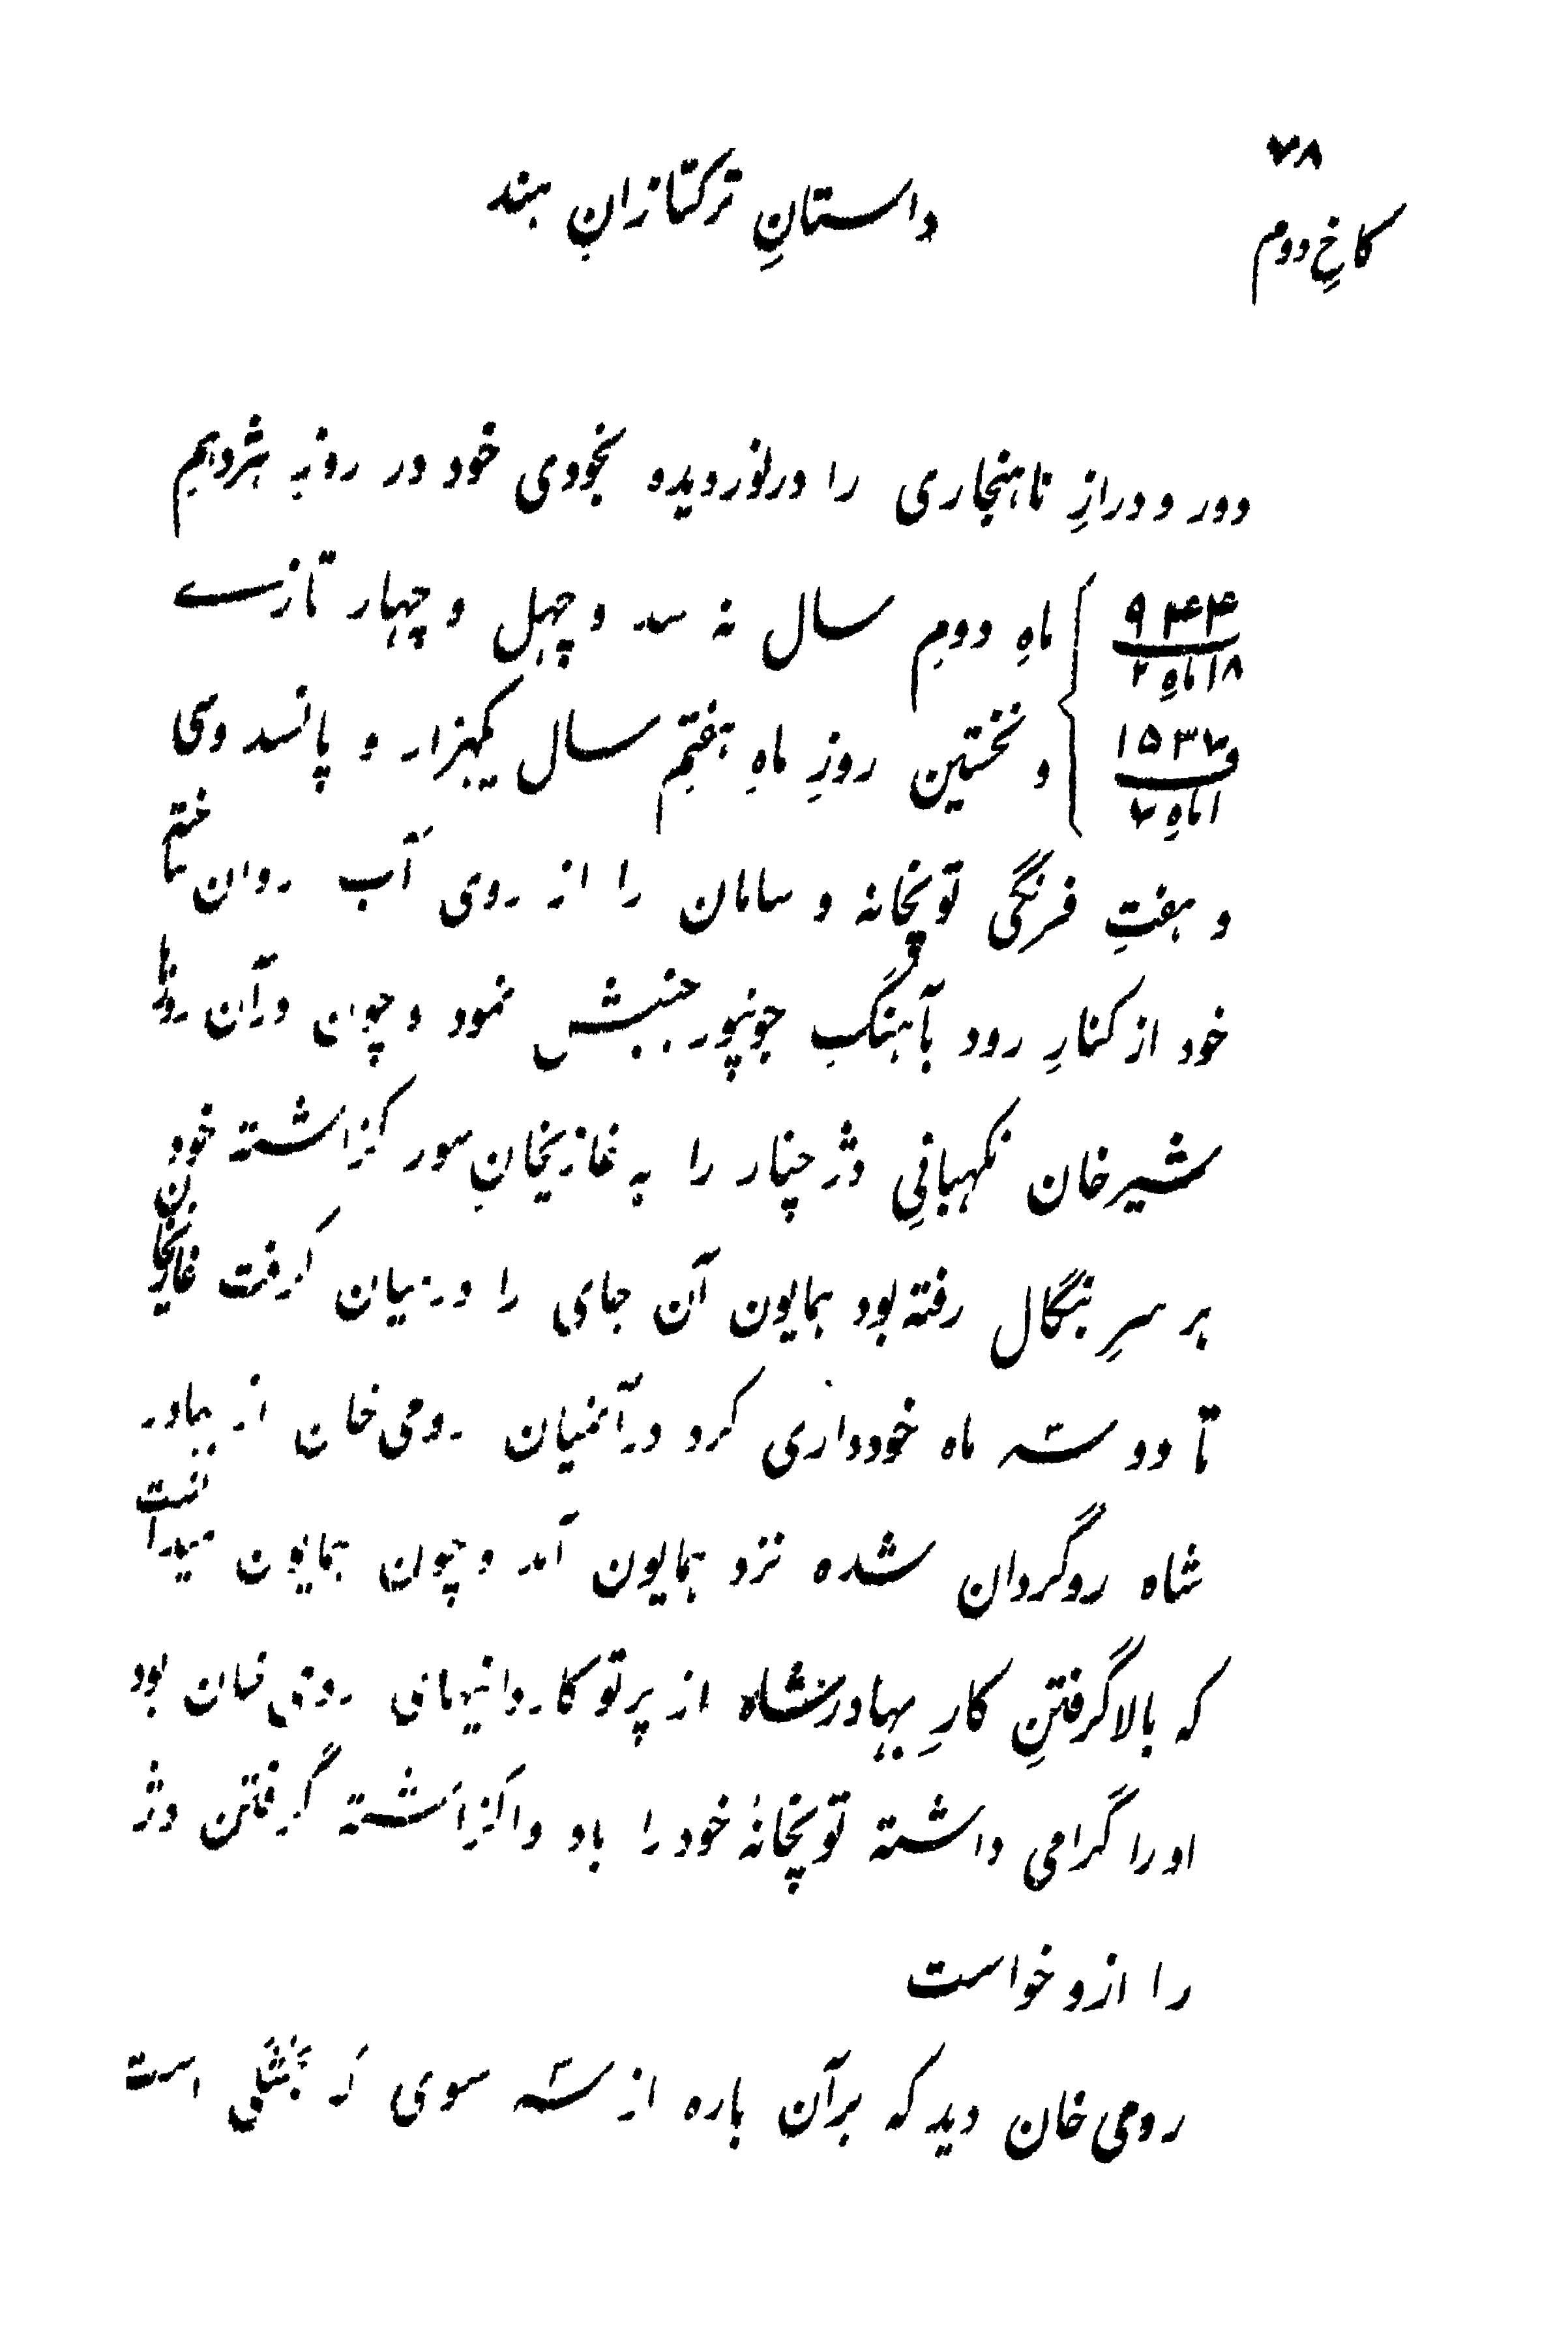 ۷۸
داستانِ ترکتازانِ هند
کاخِ دوم
دور و درازِ ناهنجاری را درنوردیده بخودی خود در روز هژدهم
۹۴۴
۱۸ ماهِ ۲
ماهِ دومِ سال نه سد و چهل و چهار تازے
و ۱۵۳۷
۱ ماهِ ۷
و نخستین روزِ ماهِ هفتمِ سال یکهزار و پانسد و سی
و هفتِ فرنگی توپخانه و سامان را از روی آب روان ساخته
خود از کنارِ رود بآهنگِ جونپور جنبش نمود و چون درآن روزها
شیرخان نگهبانیِ دژ چنار را به غازیخانِ سور گزاشته خود
بر سرِ بنگال رفته بود همایون آن جای را در میان گرفت غازیخان
تا دو سه ماه خودداری کرد درآنمیان رومی خان از بهادر
شاه روگردان شده نزد همایون آمد و چون همایون میدانست
که بالا گرفتنِ کارِ بهادرشاه از پرتو کاردانیهای رومی خان بود
اورا گرامی داشته توپخانهٔ خود را باو واگزاشته گرفتن دژ
را ازو خواست
رومی خان دید که برآن باره از سه سوی که بخشکی است